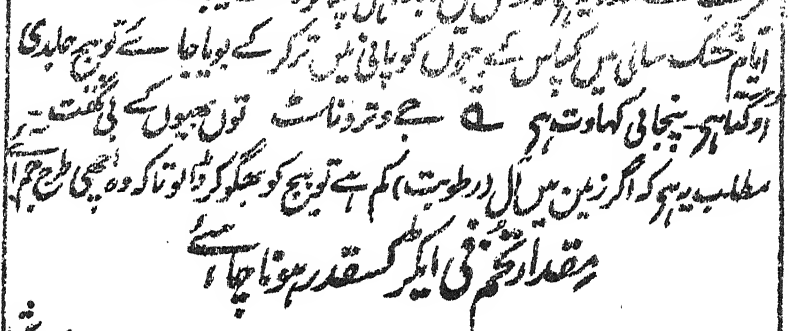 ایام خشک سالی میں کپاس کے بیجوں کو پانی میں تر کر کے بویا جائے تو بیج جلدی
اوگتا ہی۔ پنجابی کہاوت ہی جے وتر و ناٹ توں بھیوں کے بی گھت
مطلب یہ ہی کہ اگر زمین میں آل (رطوبت) کم ہے تو بیج کو بھگو کر ڈالو تاکہ وہ اچھی طرح جم آئے
مقدار تخم فی ایکڑ کسقدر ہونا چاہئے